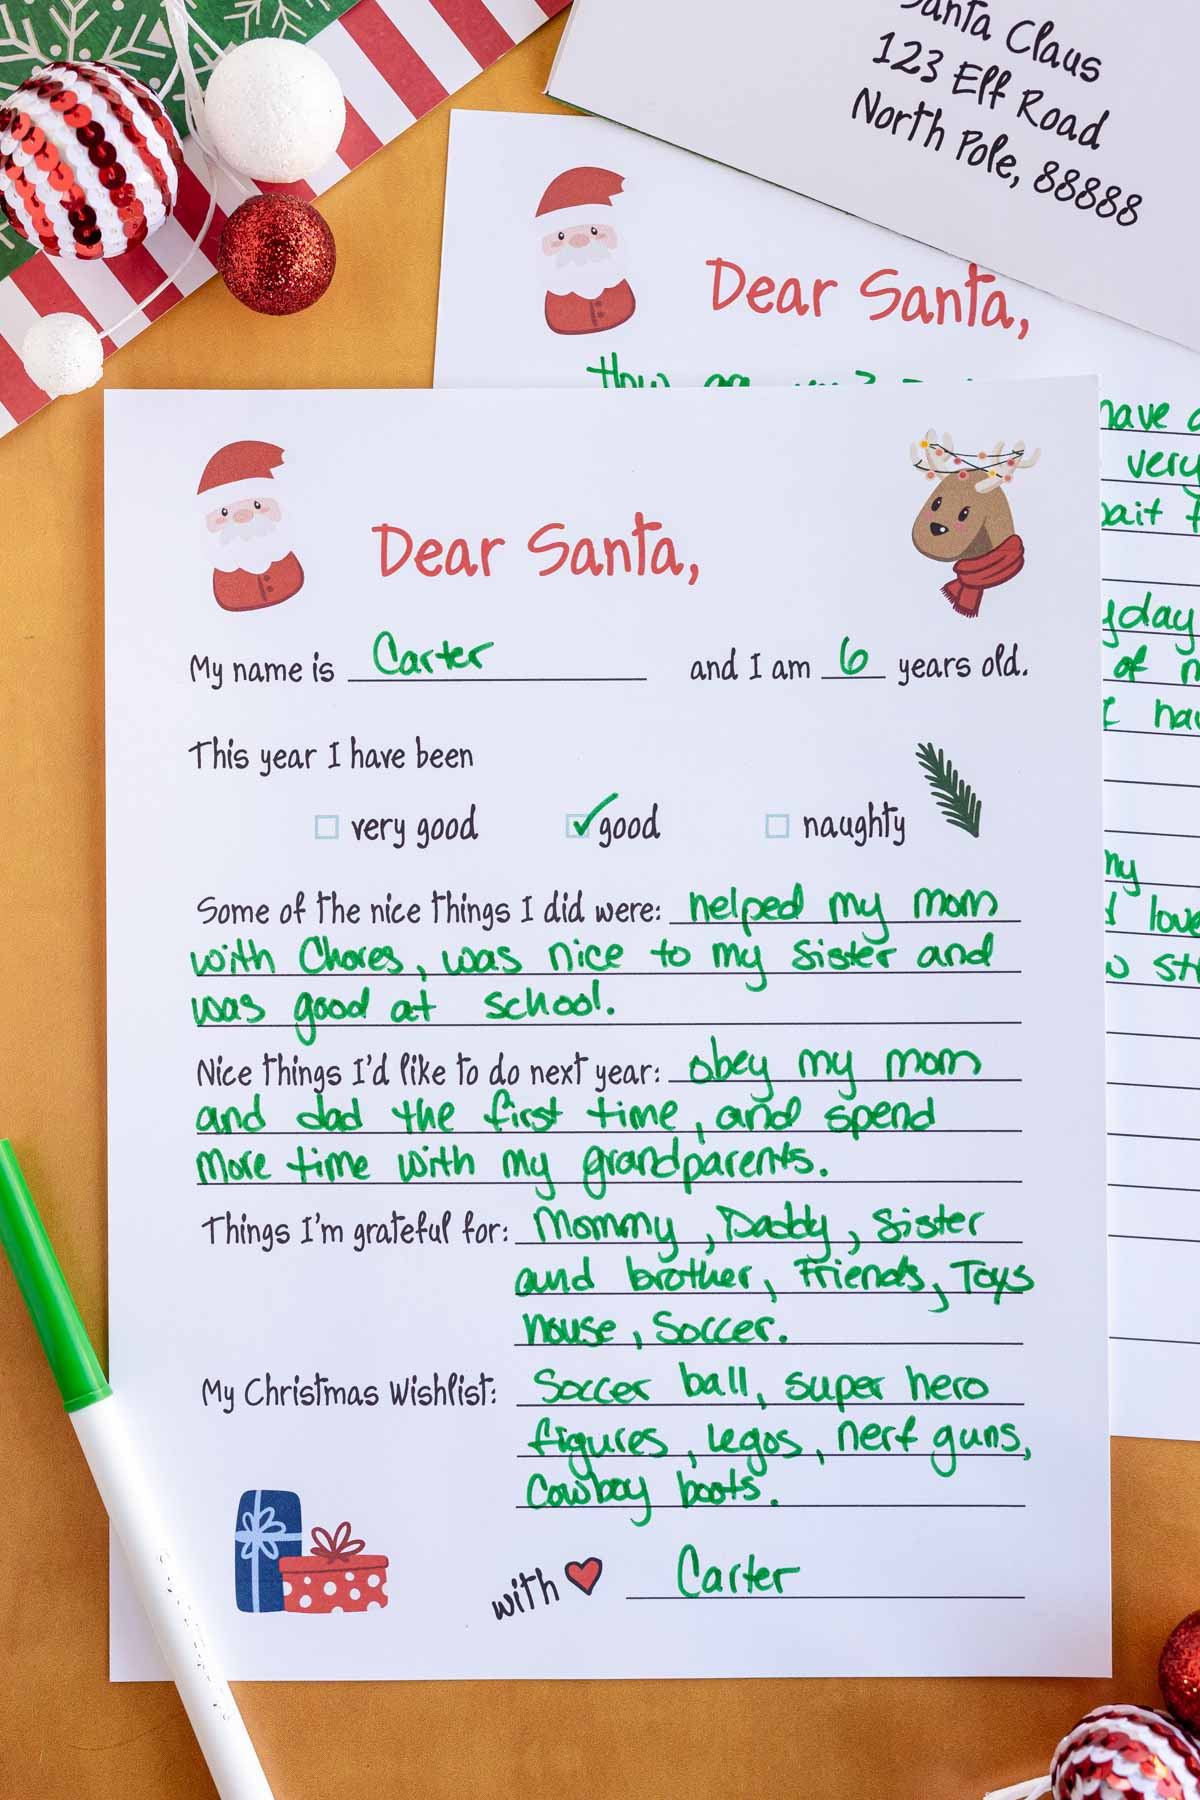 Santa Claus
123 Elf Road
North Pole, 88888
Dear Santa,
How
have
very
yday
of
I
my
love
Dear Santa,
My name is Carter and I am 6 years old.
This year I have been
very good good naughty
Some of the nice things I did were: helped my mom
with Chores, was nice to my sister and
was good at school.
Nice things I'd like to do next year: obey my mom
and dad the first time, and spend
more time with my grandparents.
Things I'm grateful for: Mommy, Daddy, Sister
and brother, Friends, Toys
house, Soccer.
My Christmas Wishlist: Soccer ball, super hero
figures, Legos, nerf guns,
Cowboy boots.
with Carter